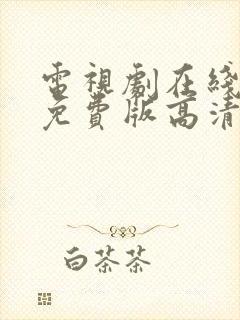 電視劇在綫
免費版高清
白茶茶